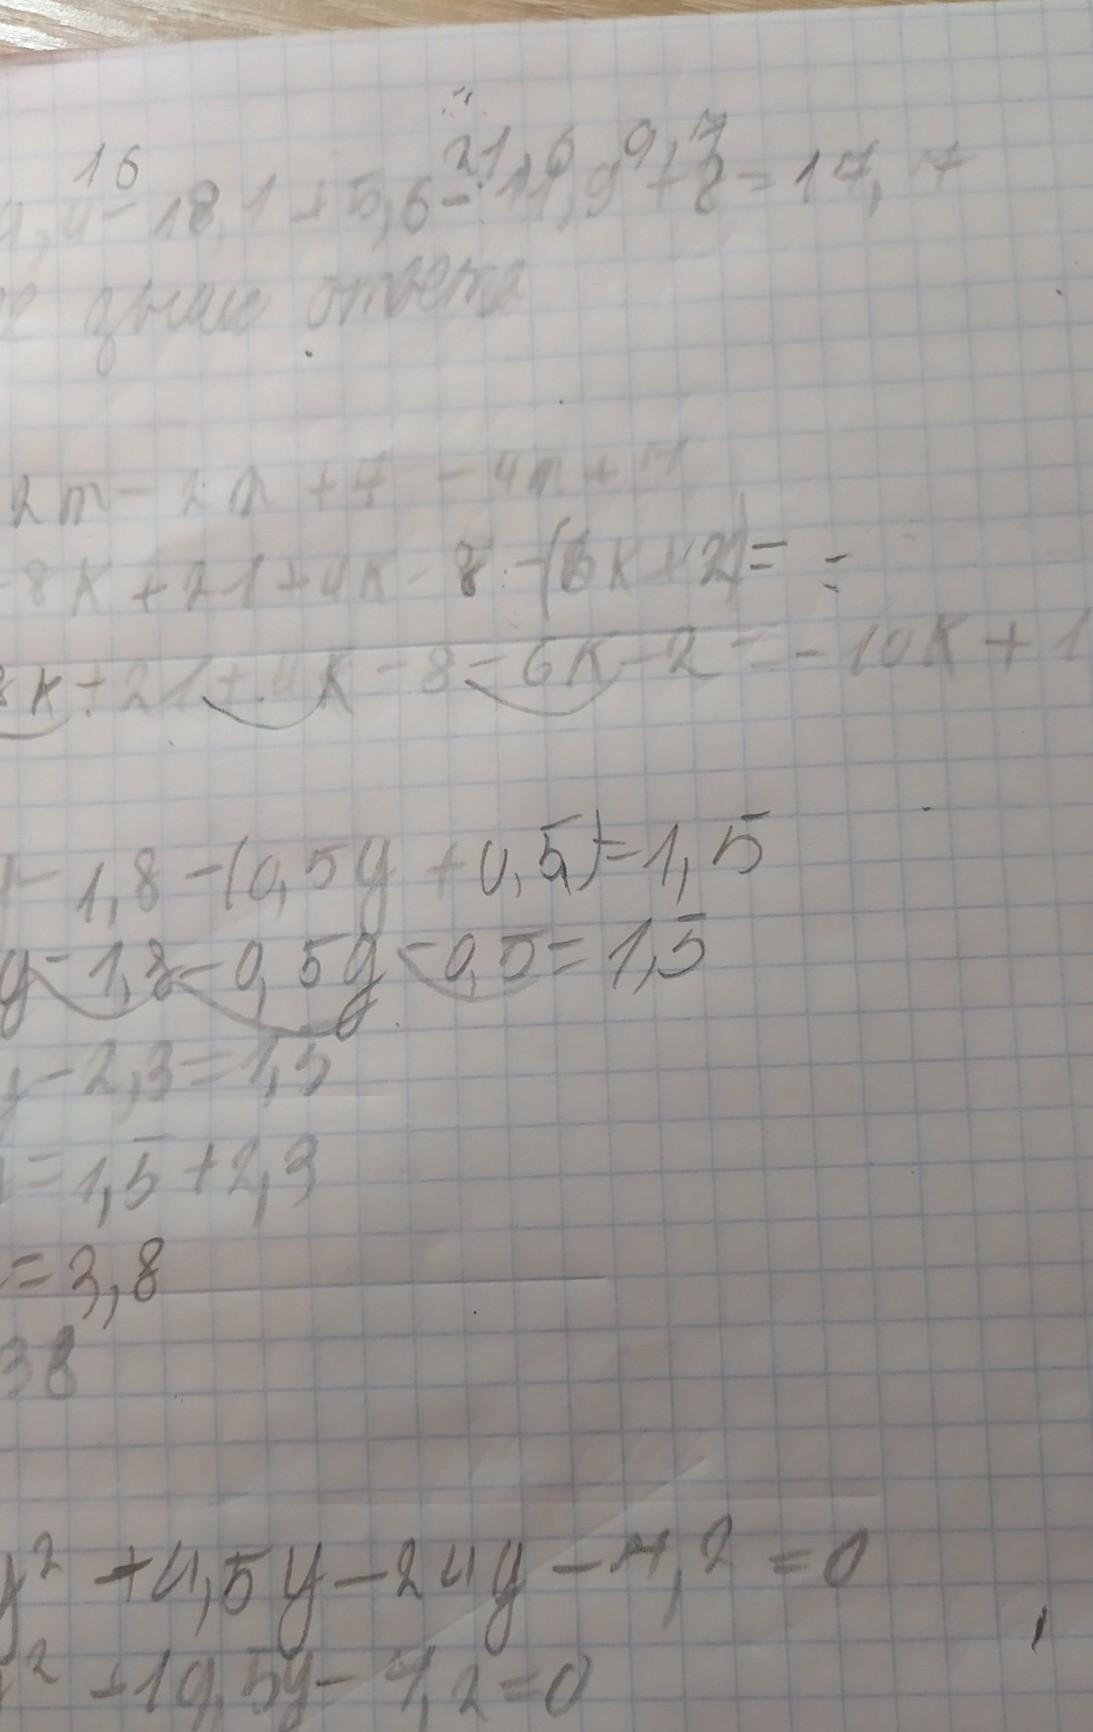 16 21,6 9,7
,4 - 18,1 + 5,6 - 11,9 + 2 = 17,7
ответа
2m - 2n + 7 - 4n + 7
-8k + 21 + 4k - 8 - (6k + 2) =
8k + 21 + 4k - 8 - 6k - 2 = -10k + 1
- 1,8 - (0,5y + 0,5) = 1,5
y - 1,8 - 0,5y - 0,5 = 1,5
- 2,3 = 1,5
= 1,5 + 2,3
= 3,8
38
y² + 4,5y - 24y - 7,2 = 0
² + 19,5y - 7,2 = 0